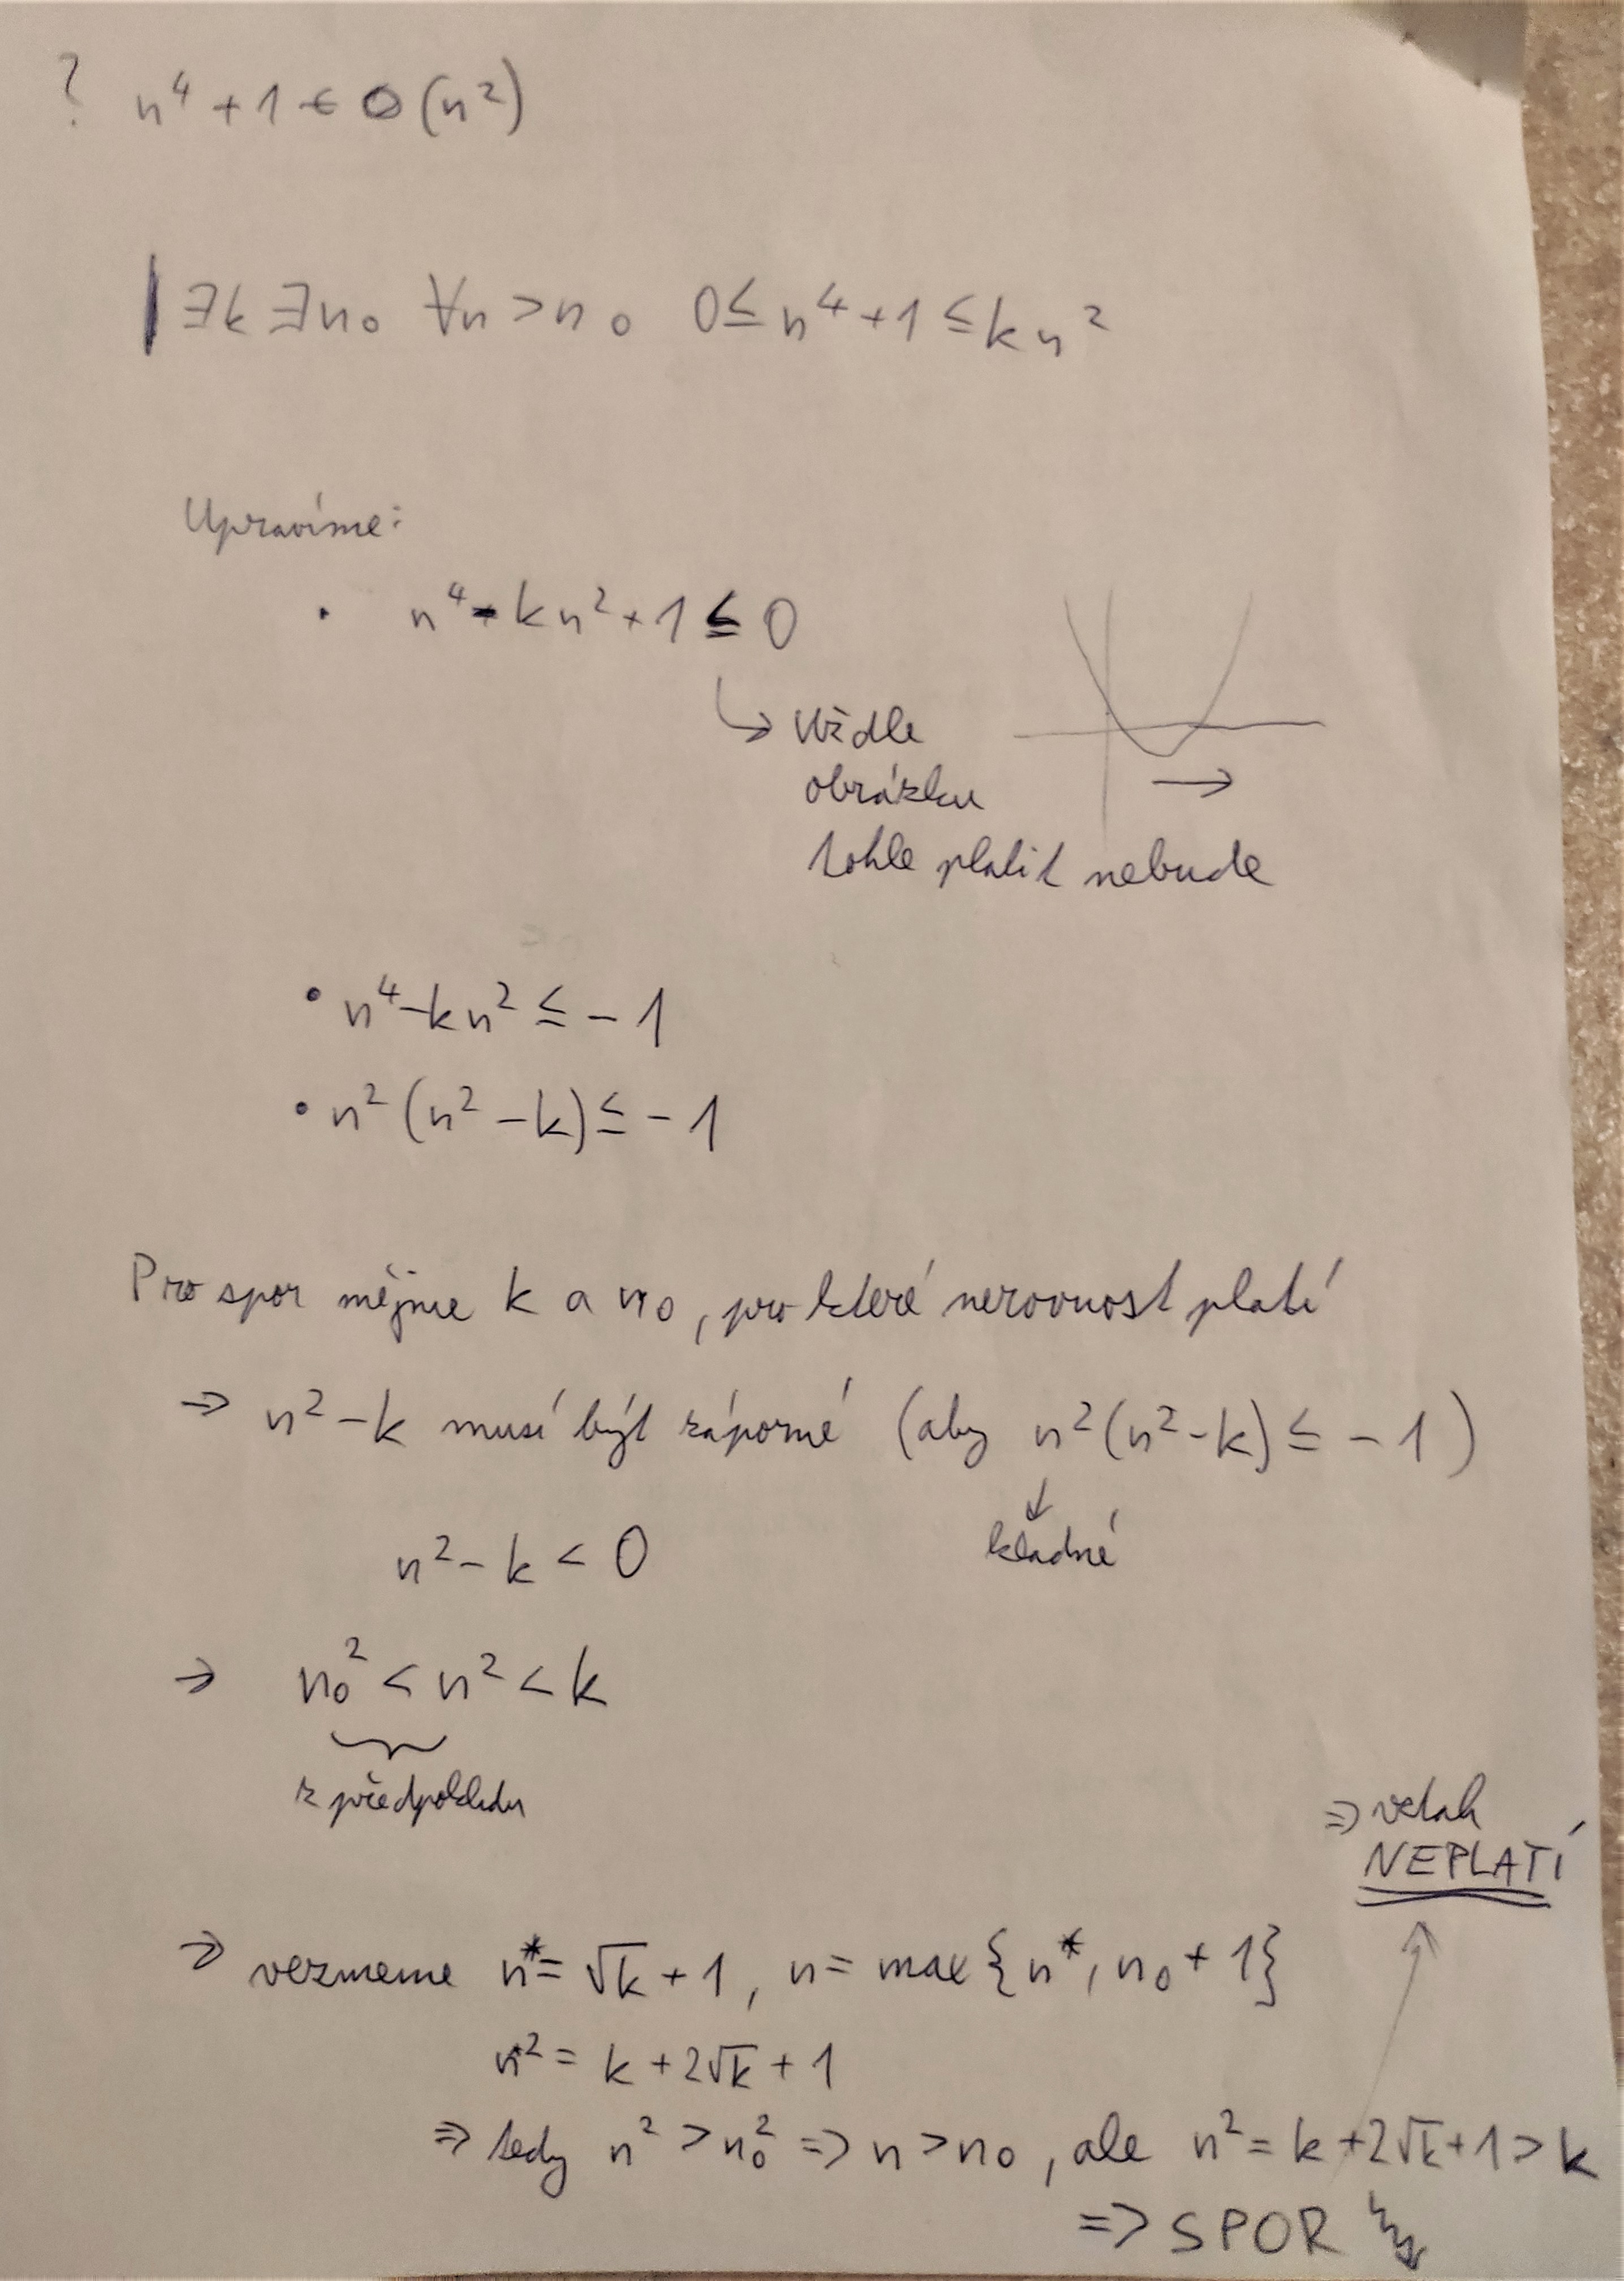 ? n⁴ + 1 ∈ O(n²)
| ∃k ∃n₀ ∀n > n₀ 0 ≤ n⁴ + 1 ≤ kn²
Upravíme:
• n⁴ - kn² + 1 ≤ 0
↳ Vždle
obrázku
tohle platit nebude
• n⁴ - kn² ≤ -1
• n²(n² - k) ≤ -1
Pro spor mějme k a n₀, pro které nerovnost platí
⇒ n² - k musí být záporné (aby n²(n² - k) ≤ -1)
↓
kladné
n² - k < 0
⇒ n₀² < n² < k
z předpokladu
⇒ vztah
NEPLATÍ
⇒ vezmeme n* = √k + 1, n = max{n*, n₀ + 1}
n*² = k + 2√k + 1
⇒ tedy n² > n₀² ⇒ n > n₀, ale n² = k + 2√k + 1 > k
⇒ SPOR ↯